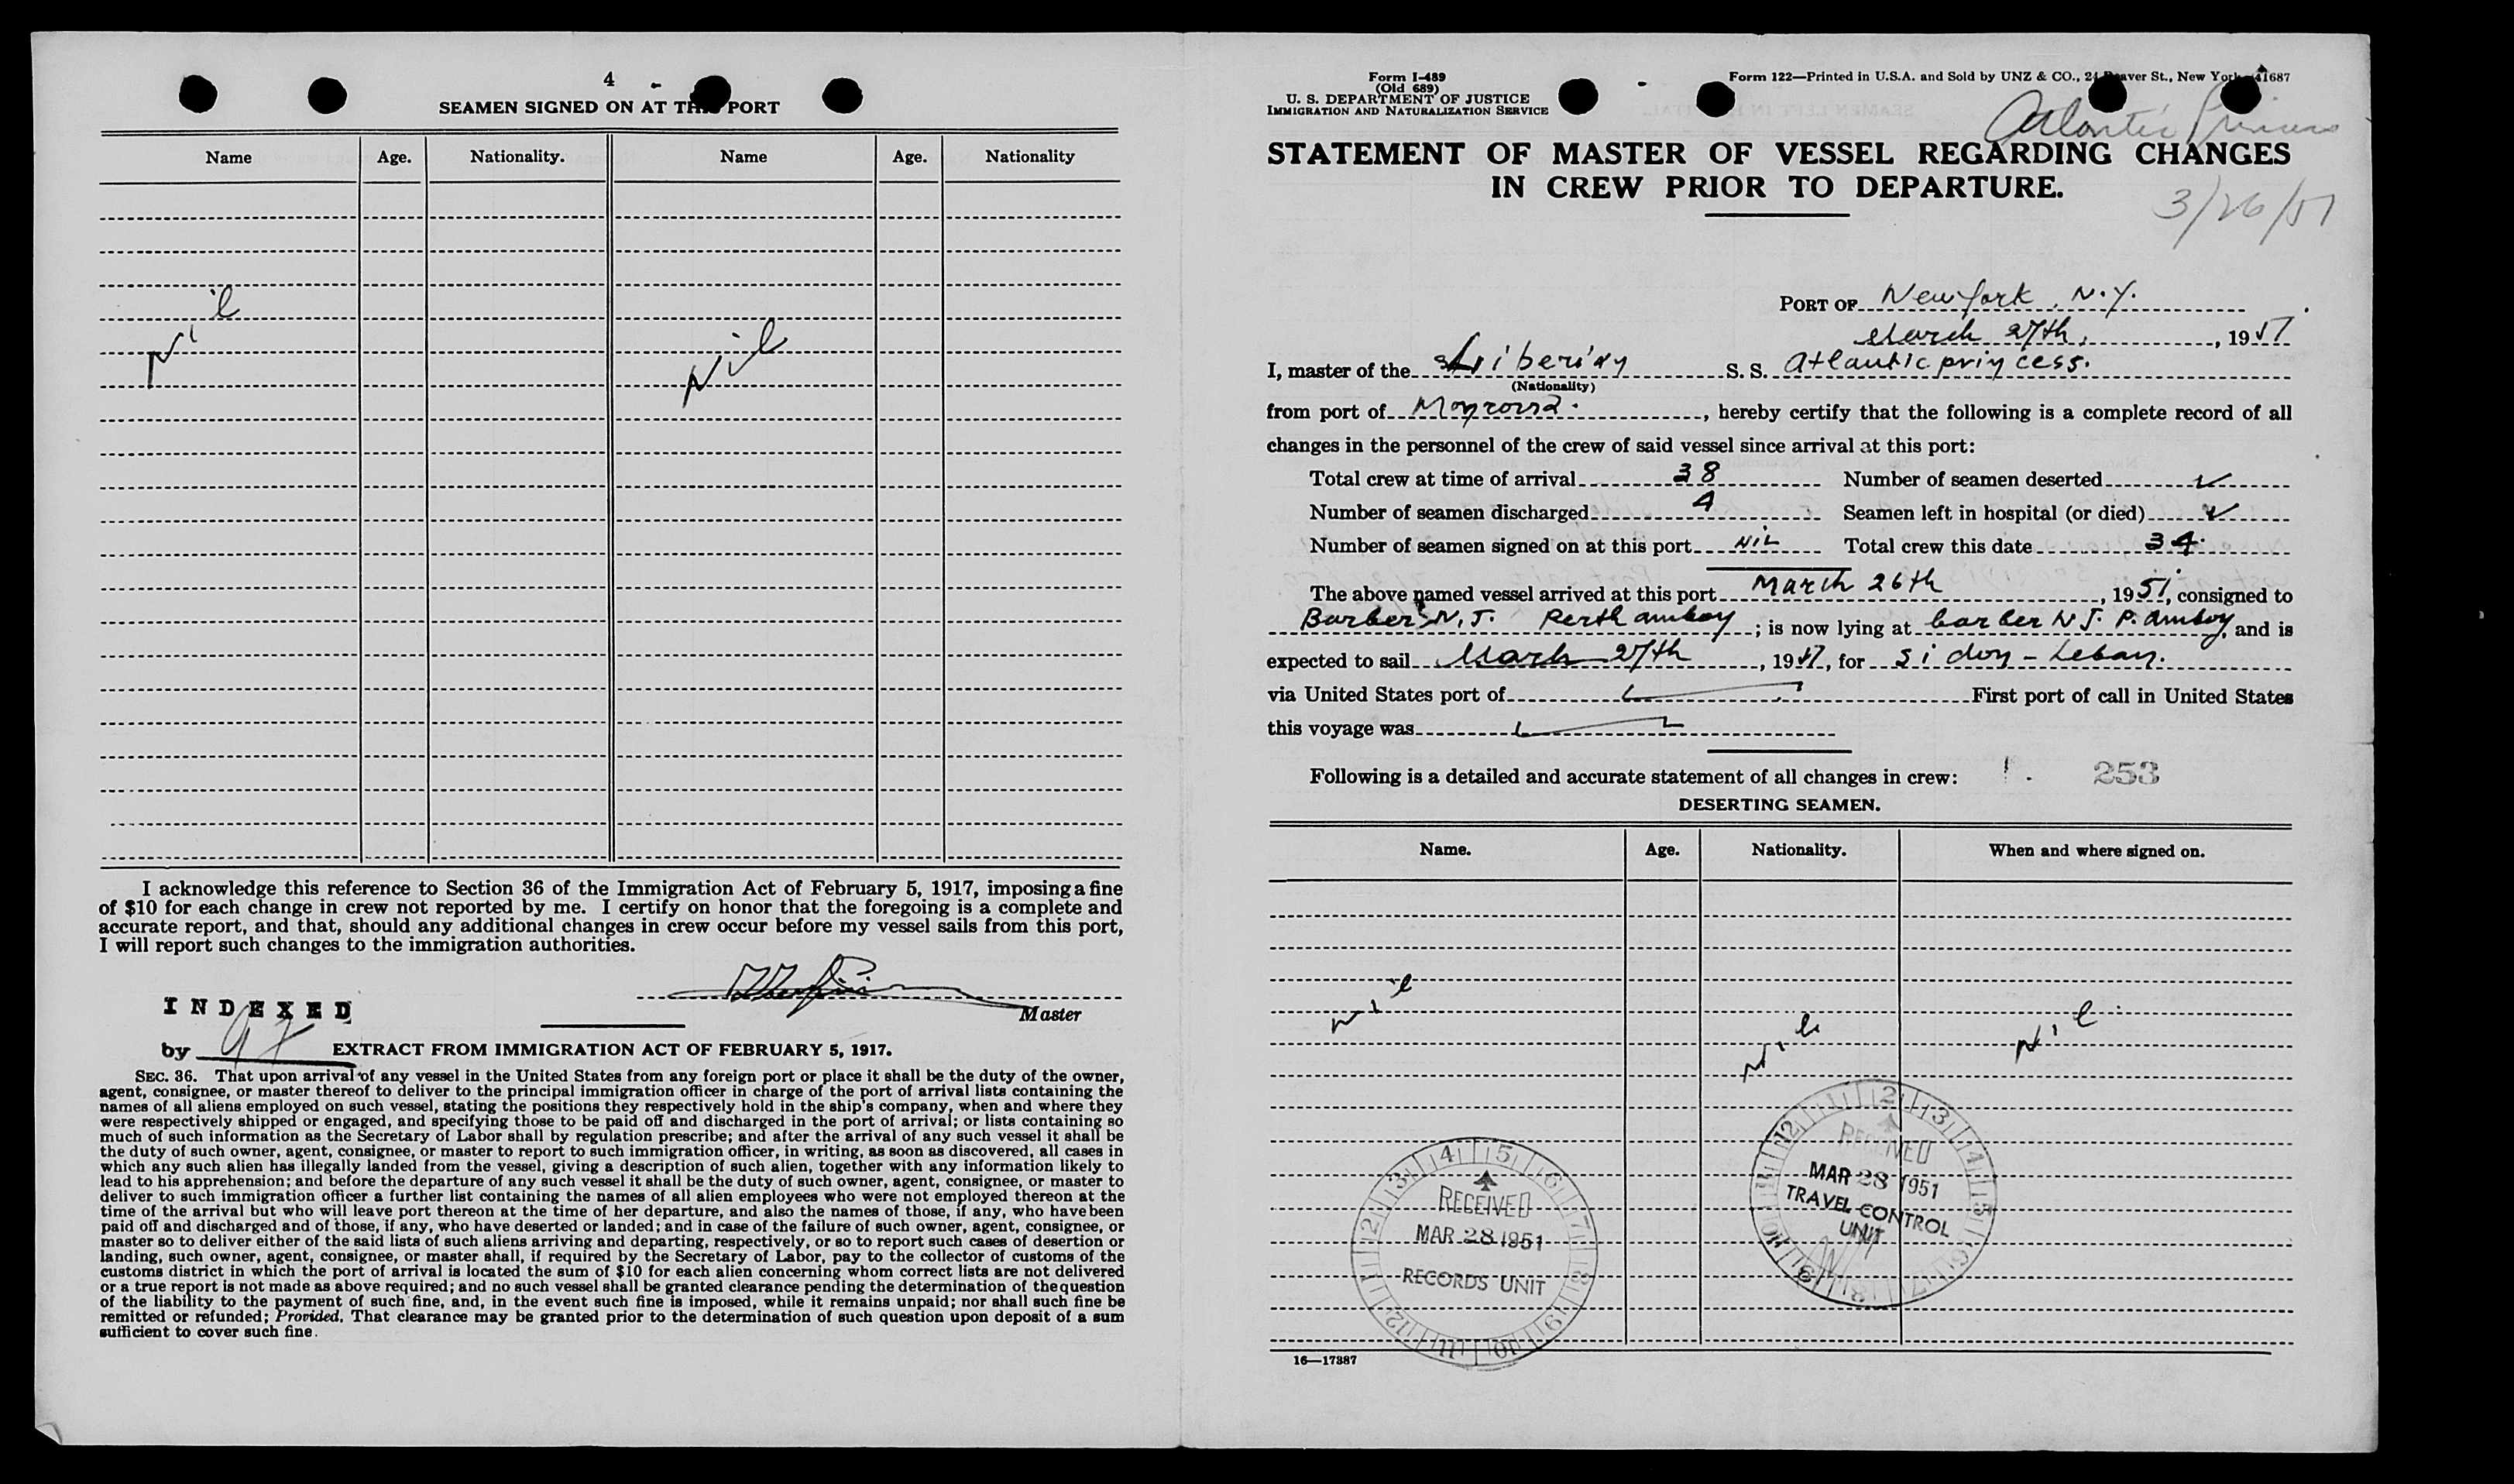 4
SEAMEN SIGNED ON AT THIS PORT
Name Age. Nationality. Name Age. Nationality
Nil Nil
I acknowledge this reference to Section 36 of the Immigration Act of February 5, 1917, imposing a fine
of $10 for each change in crew not reported by me. I certify on honor that the foregoing is a complete and
accurate report, and that, should any additional changes in crew occur before my vessel sails from this port,
I will report such changes to the immigration authorities.
Master
INDEXED
by
EXTRACT FROM IMMIGRATION ACT OF FEBRUARY 5, 1917.
SEC. 36. That upon arrival of any vessel in the United States from any foreign port or place it shall be the duty of the owner,
agent, consignee, or master thereof to deliver to the principal immigration officer in charge of the port of arrival lists containing the
names of all aliens employed on such vessel, stating the positions they respectively hold in the ship's company, when and where they
were respectively shipped or engaged, and specifying those to be paid off and discharged in the port of arrival; or lists containing so
much of such information as the Secretary of Labor shall by regulation prescribe; and after the arrival of any such vessel it shall be
the duty of such owner, agent, consignee, or master to report to such immigration officer, in writing, as soon as discovered, all cases in
which any such alien has illegally landed from the vessel, giving a description of such alien, together with any information likely to
lead to his apprehension; and before the departure of any such vessel it shall be the duty of such owner, agent, consignee, or master to
deliver to such immigration officer a further list containing the names of all alien employees who were not employed thereon at the
time of the arrival but who will leave port thereon at the time of her departure, and also the names of those, if any, who have been
paid off and discharged and of those, if any, who have deserted or landed; and in case of the failure of such owner, agent, consignee, or
master so to deliver either of the said lists of such aliens arriving and departing, respectively, or so to report such cases of desertion or
landing, such owner, agent, consignee, or master shall, if required by the Secretary of Labor, pay to the collector of customs of the
customs district in which the port of arrival is located the sum of $10 for each alien concerning whom correct lists are not delivered
or a true report is not made as above required; and no such vessel shall be granted clearance pending the determination of the question
of the liability to the payment of such fine, and, in the event such fine is imposed, while it remains unpaid; nor shall such fine be
remitted or refunded; Provided, That clearance may be granted prior to the determination of such question upon deposit of a sum
sufficient to cover such fine.
Form I-489
(Old 689)
U. S. DEPARTMENT OF JUSTICE
IMMIGRATION AND NATURALIZATION SERVICE
Form 122—Printed in U.S.A. and Sold by UNZ & CO., 24 Beaver St., New York 41687
Atlantic Princess
STATEMENT OF MASTER OF VESSEL REGARDING CHANGES
IN CREW PRIOR TO DEPARTURE.
3/26/51
PORT OF New York, N.Y.
March 27th, , 1951
I, master of the Liberian S. S. Atlantic princess.
(Nationality)
from port of Monrovia. , hereby certify that the following is a complete record of all
changes in the personnel of the crew of said vessel since arrival at this port:
Total crew at time of arrival 38 Number of seamen deserted ✓
Number of seamen discharged 4 Seamen left in hospital (or died) ✓
Number of seamen signed on at this port NiL Total crew this date 34.
The above named vessel arrived at this port March 26th , 1951, consigned to
Barber N.J. Perth amboy ; is now lying at barber N J. P. amboy, and is
expected to sail March 27th , 1951, for Sidon - Leban.
via United States port of First port of call in United States
this voyage was
Following is a detailed and accurate statement of all changes in crew: 253
DESERTING SEAMEN.
Name. Age. Nationality. When and where signed on.
Nil Nil Nil
RECEIVED
MAR 28 1951
RECORDS UNIT
1 2 3 4 5 6 7 8 9 10 11 12
RECEIVED
MAR 28 1951
TRAVEL CONTROL
UNIT
1 2 3 4 5 6 7 8 9 10 11 12
16—17387